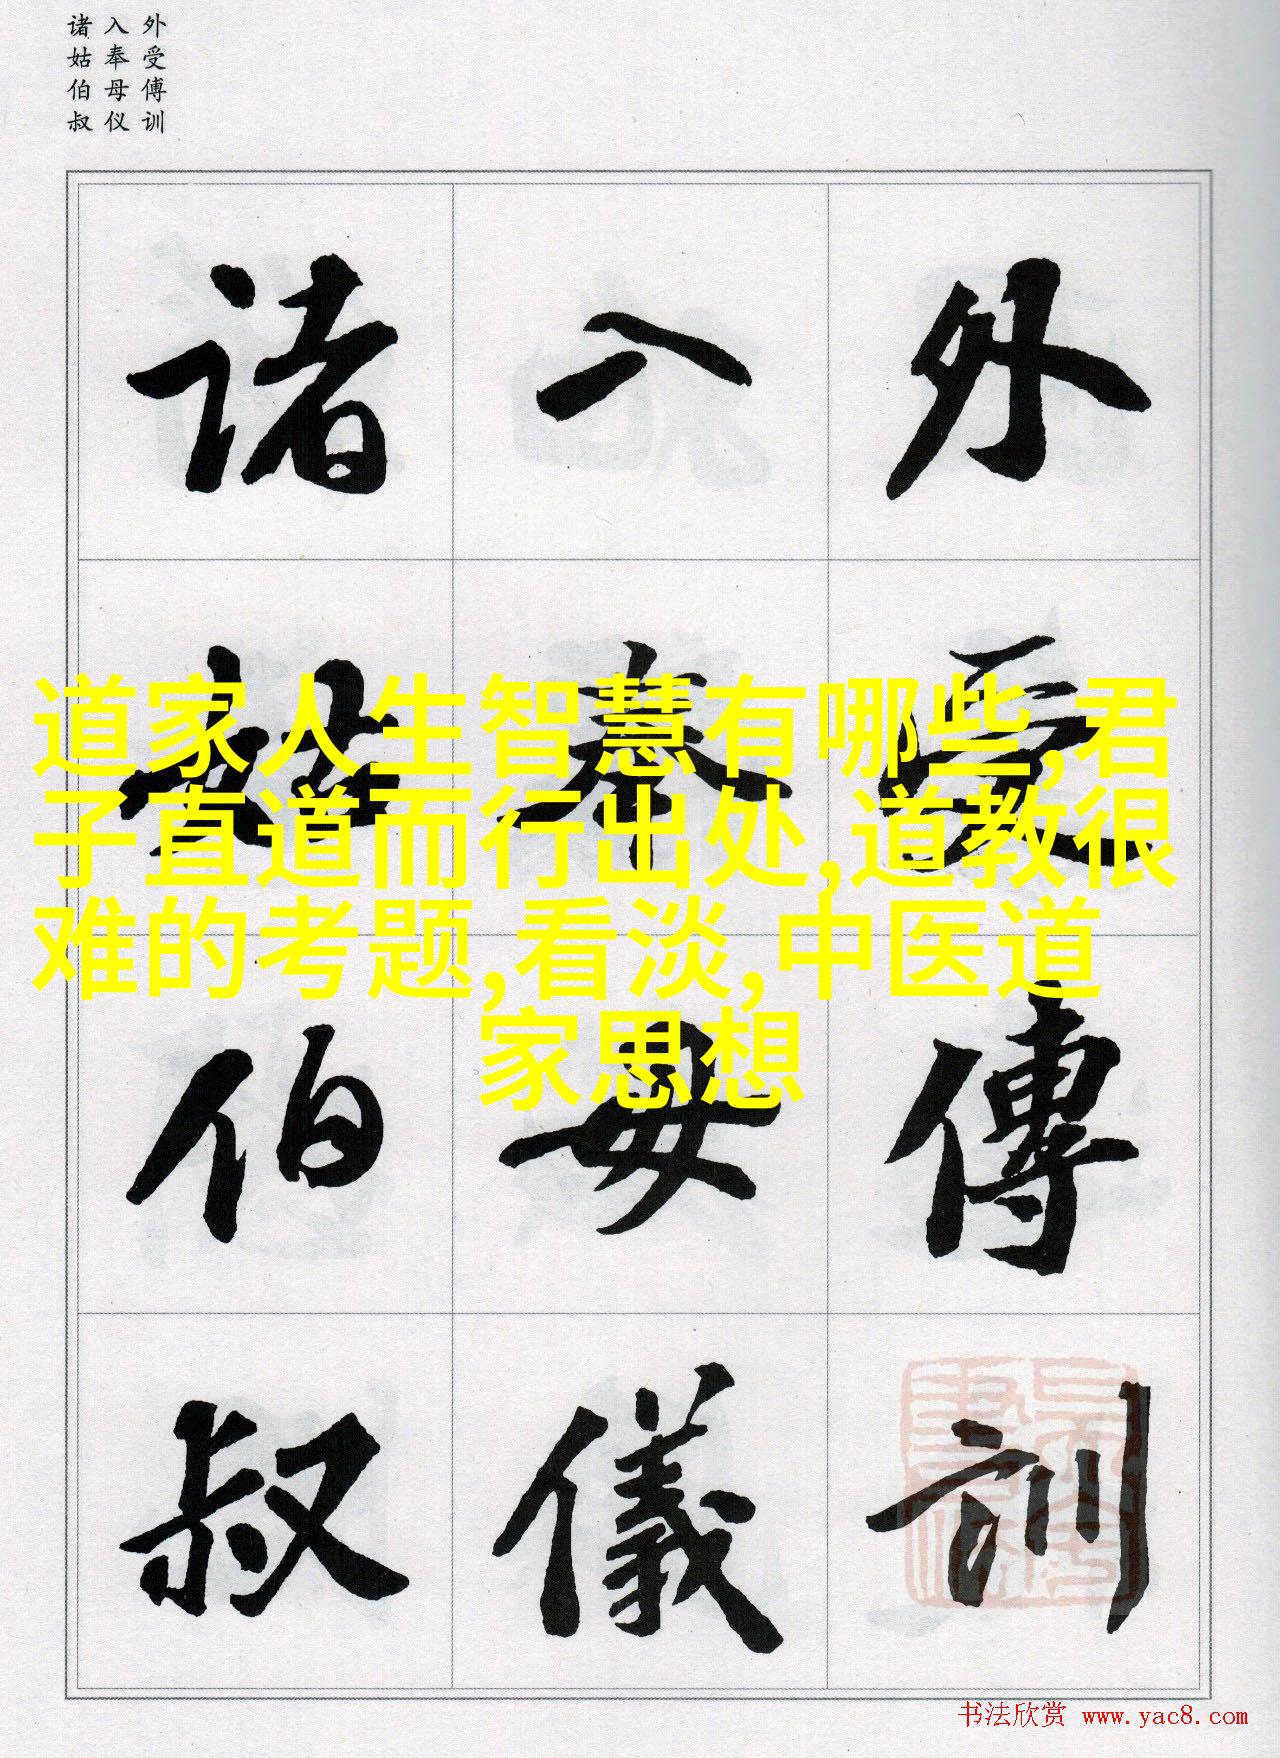 外受傅训
入奉母仪
诸姑伯叔
外受傅訓
入奉母儀
诸姑伯叔
道家人生智慧有哪些,君
子直道而行出处,道教很
难的考题,看淡,中医道
家思想
书法欣赏 www.yac8.com